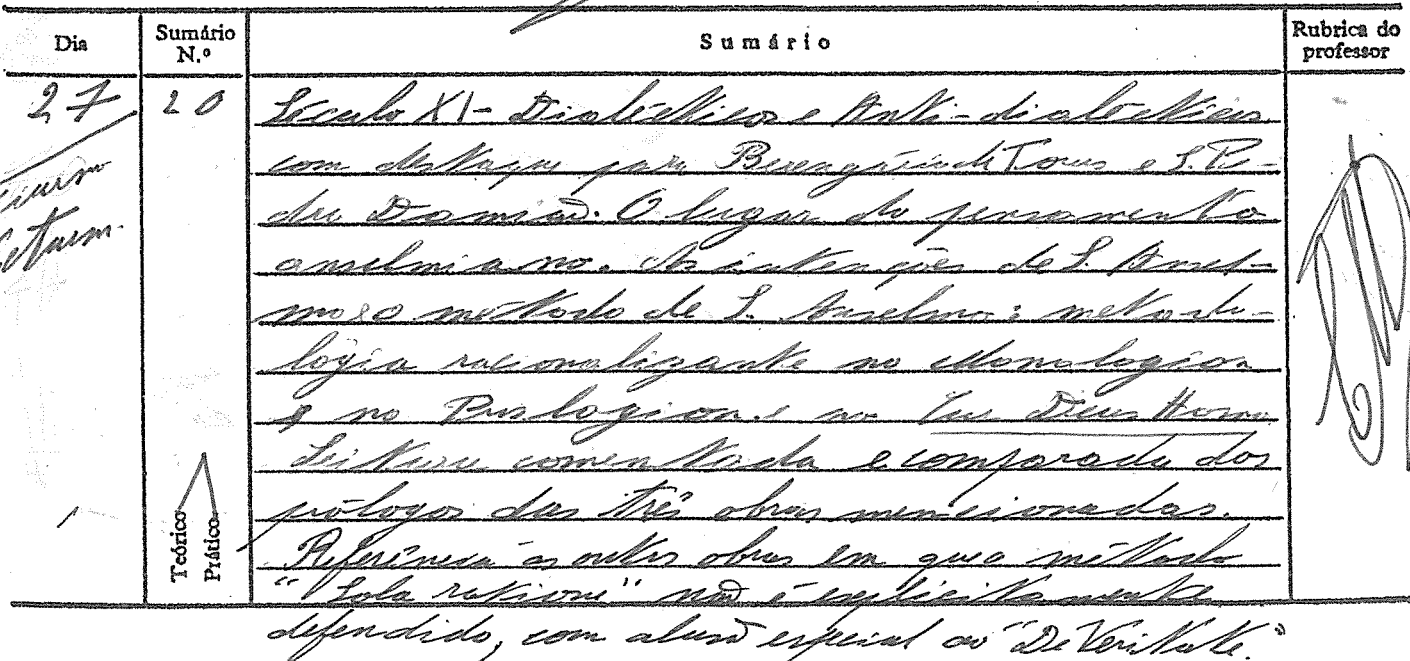 Dia Sumário N.º Sumário Rubrica do professor
27 20 Século XI - Dialécticos e Anti-dialécticos
com destaque para Berengário de Tours e S. Pe-
dro Damião. O lugar do pensamento
anselmiano. As intenções de S. Ansel-
mo e o método de S. Anselmo: metodo-
lógia racionalizante no Monologion
e no Proslogion e no Cur Deus Homo
Leitura comentada e comparada dos
prólogos das três obras mencionadas.
Teórico Prático
Referência às outras obras em que o método
"Sola ratione" não é explicitamente
defendido, com alusão especial ao "De Veritate."